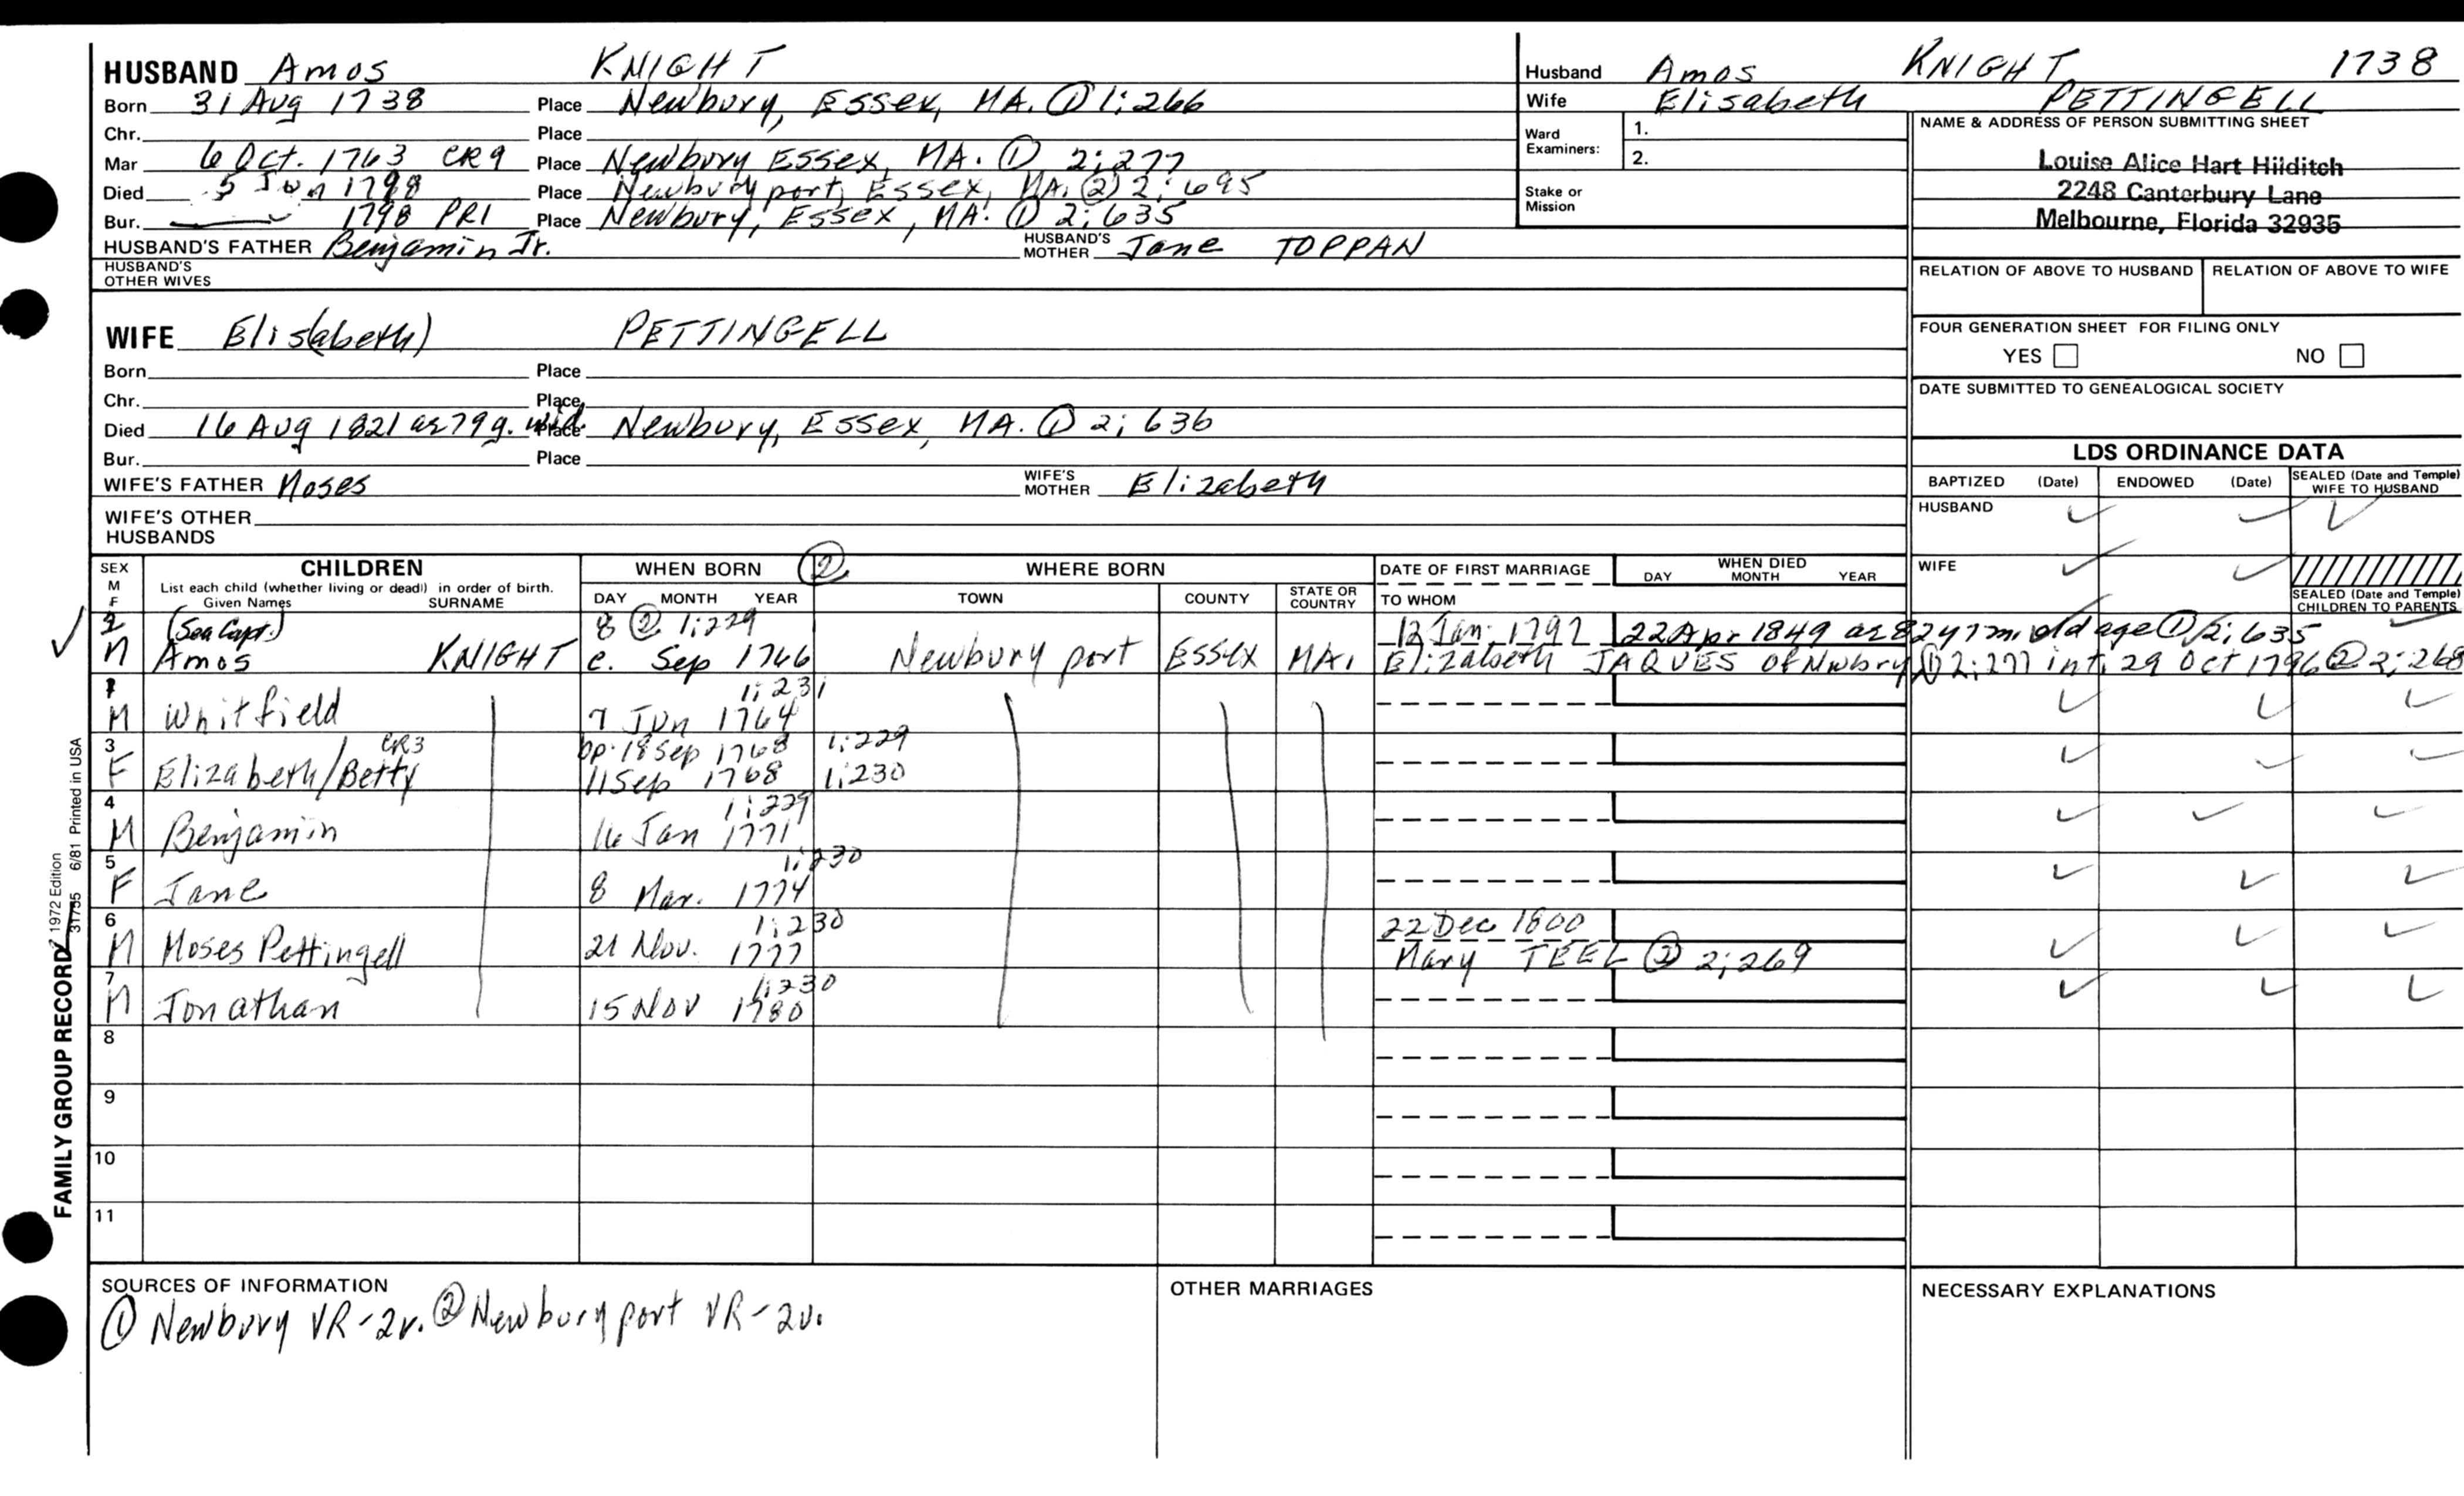 HUSBAND Amos KNIGHT
Born 31 Aug 1738 Place Newbury, Essex, MA. ① 1;266
Chr. Place
Mar 6 Oct. 1763 CR9 Place Newbury Essex, MA. ① 2;277
Died 5 Jun 1798 Place Newburyport, Essex, MA. ② 2;695
Bur. 1798 PR1 Place Newbury, Essex, MA. ① 2;635
HUSBAND'S FATHER Benjamin Jr. HUSBAND'S MOTHER Jane TOPPAN
HUSBAND'S OTHER WIVES
Husband Amos KNIGHT 1738
Wife Elisabeth PETTINGELL
Ward Examiners: 1.
2.
Stake or Mission
NAME & ADDRESS OF PERSON SUBMITTING SHEET
Louise Alice Hart Hilditch
2248 Canterbury Lane
Melbourne, Florida 32935
RELATION OF ABOVE TO HUSBAND RELATION OF ABOVE TO WIFE
WIFE Elis(abeth) PETTINGELL
Born Place
Chr. Place
Died 16 Aug 1821 ae 79 y. wid. Place Newbury, Essex, MA. ① 2;636
Bur. Place
WIFE'S FATHER Moses WIFE'S MOTHER Elizabeth
WIFE'S OTHER HUSBANDS
FOUR GENERATION SHEET FOR FILING ONLY
YES NO
DATE SUBMITTED TO GENEALOGICAL SOCIETY
LDS ORDINANCE DATA
BAPTIZED (Date) ENDOWED (Date) SEALED (Date and Temple) WIFE TO HUSBAND
HUSBAND ✓ ✓ ✓
WIFE ✓ ✓
SEALED (Date and Temple) CHILDREN TO PARENTS
SEX M F CHILDREN WHEN BORN ② WHERE BORN DATE OF FIRST MARRIAGE WHEN DIED
List each child (whether living or dead) in order of birth.
Given Names SURNAME DAY MONTH YEAR TOWN COUNTY STATE OR COUNTRY TO WHOM DAY MONTH YEAR
✓ 2 (Sea Capt.) 8 ② 1;229 12 Jan. 1797 22 Apr 1849 ae 82 y 7 m. old age ① 2;635 ✓
M Amos KNIGHT c. Sep 1766 Newbury port Essex MA. Elizabeth JAQUES of Nwbry ① 2;277 int. 29 Oct 1796 ② 2;268
1 1;231
M Whitfield 7 Jun 1764 ✓ ✓ ✓
3 CR3 bp. 18 Sep 1768 1;229
F Elizabeth/Betty 11 Sep 1768 1;230 ✓ ✓ ✓
4 1;229
M Benjamin 16 Jan 1771 ✓ ✓ ✓
5 1;230
F Jane 8 Mar. 1774 ✓ ✓ ✓
6 1;230 22 Dec 1800
M Moses Pettingell 21 Nov. 1777 Mary TEEL ② 2;269 ✓ ✓ ✓
7 1;230
M Jonathan 15 Nov 1780 ✓ ✓ ✓
8
9
10
11
SOURCES OF INFORMATION
① Newbury VR-2v. ② Newburyport VR-2v.
OTHER MARRIAGES
NECESSARY EXPLANATIONS
FAMILY GROUP RECORD 1972 Edition 31795 6/81 Printed in USA